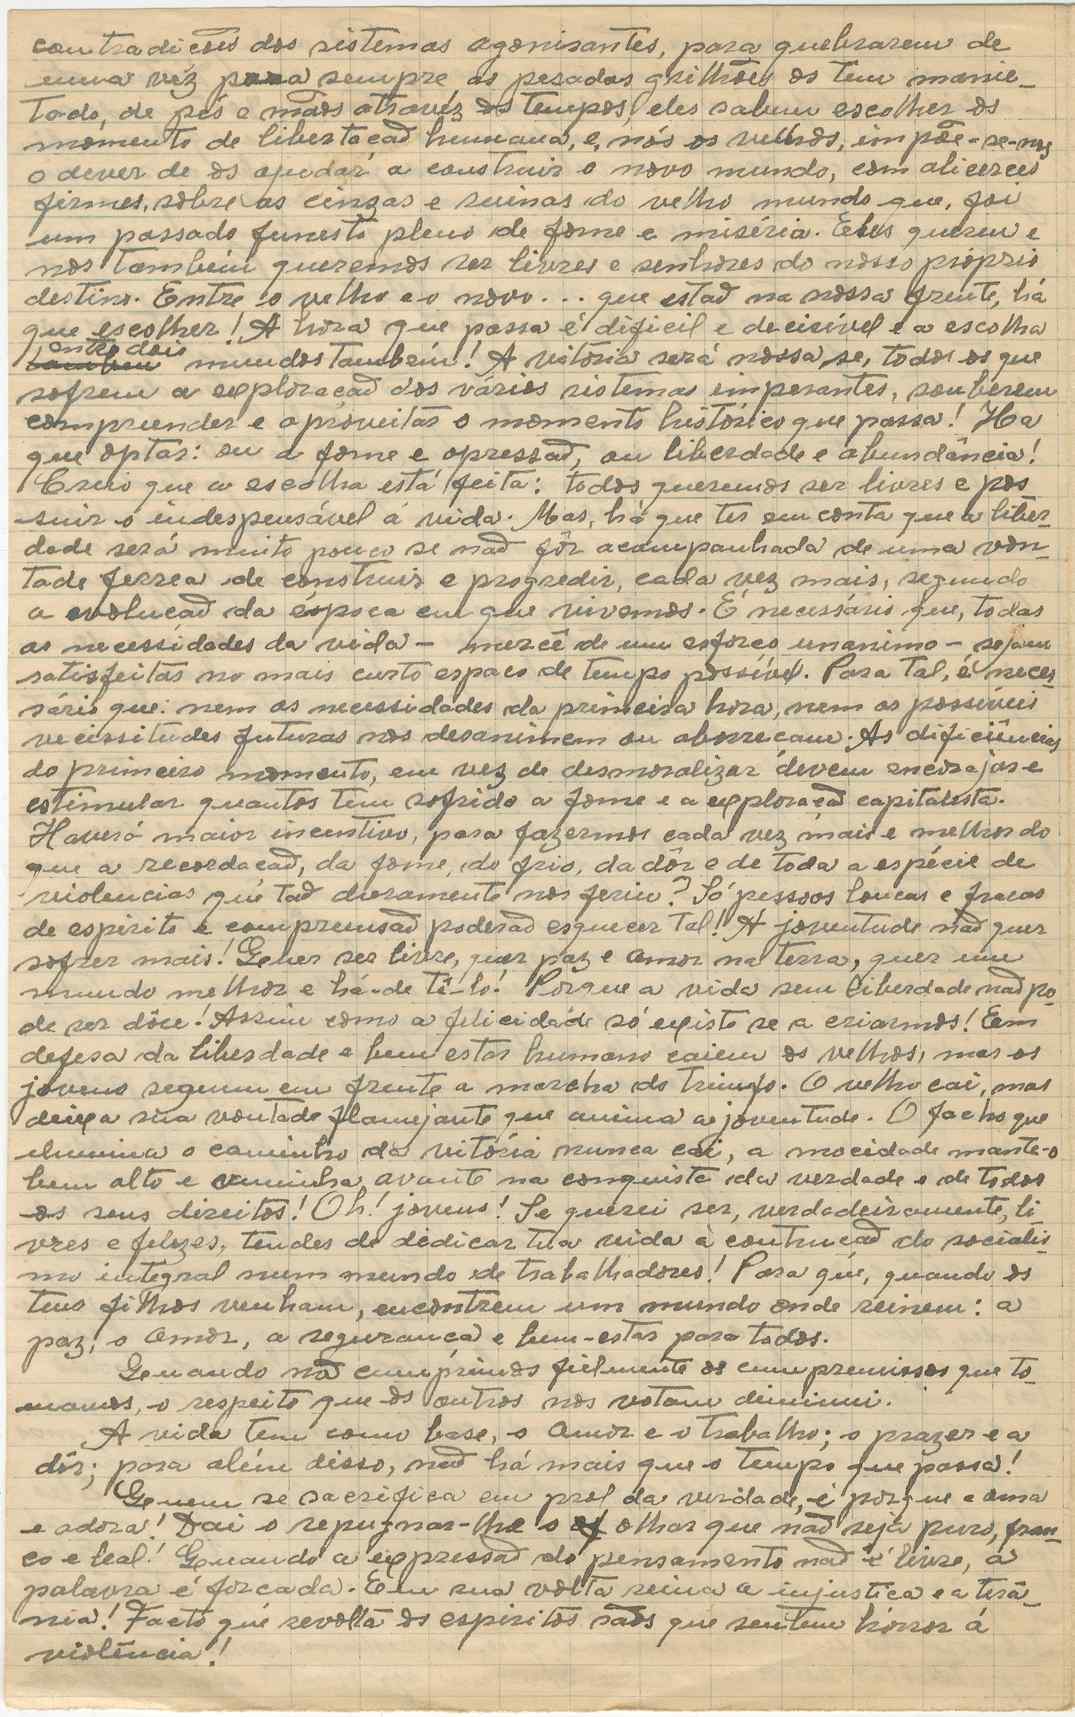 contradicões dos sistemas agonisantes, para quebrarem de
uma vêz para sempre as pesadas grilhões os tem manie-
tado, de pés e mãos atravéz os tempos, eles sabem escolher os
momento de libertacão humana, e, nós os velhos, impõe-se-nos
o dever de os ajudár a construir o novo mundo, com alicerces
firmes, sobre as cinzas e ruinas do velho mundo que, foi
um passado funesto pleno de fome e miséria. Eles querem e
nos tambêim queremos ser livres e senhores do nosso próprio
destino. Entre o velho e o novo... que estão na nossa frente, há
que escolher! A hora que passa é dificil e decisível e a escolha
entre dois mundos tambêim! A vitória será nossa se, todos os que
sofrem a exploracão dos vários sistemas imperantes, souberem
compreender e aproveitar o momento histórico que passa! Ha
que optar: ou a fome e opressão, ou liberdade e abundância!
Creio que a escolha está feita: todos queremos ser livres e pos
suir o indespensável á vida. Mas, há que ter em conta que a liber-
dade será muito pouco se não fôr acompanhada de uma von-
tade ferrea de construir e progredir, cada vez mais, segundo
a evolucão da época em que vivemos. É necessário que, todas
as necessidades da vida - mercê de um esforco unanimo - sejam
satisfeitas no mais curto espaco de tempo possível. Para tal, é neces-
sário que: nem as necessidades da primeira hora, nem as possíveis
vecissitudes futuras nos desanimem ou aborrecam. As dificiências
do primeiro momento, em vez de desmoralizar devem encorajar e
estimular quantos tem sofrido a fome e a exploracão capitalista.
Haverá maior incentivo, para fazermos cada vez mais e melhor do
que a recordacão, da fome, do frio, da dôr e de toda a espécie de
violencias que tão duramente nos feriu? Só pessoas loucas e fracas
de espirito e compreensão poderão esquecer tal! A joventude não quer
sofrer mais! Quer ser livre, quer paz e amor na terra, quer um
mundo melhor e há-de tê-lo! Porque a vida sem liberdade não po-
de ser dôce! Assim como a felicidade só existe se a criarmos! Em
defesa da liberdade e bem estar humano caiem os velhos, mas os
jovens seguem em frente a marcha do triunfo. O velho cai, mas
deixa sua vontade flamejante que anima a joventude. O facho que
ilumina o caminho da vitória nunca cai, a mocidade mante-o
bem alto e caminha avante na conquista da verdade e de todos
os seus direitos! Oh! jovens! Se querei ser, verdadeiramente, li
vres e felizes, tendes de dedicar tua vida à contrucão do socialis-
mo integral num mundo de trabalhadores! Para que, quando os
teus filhos venham, encontrem um mundo onde reinem: a
paz, o amor, a seguranca e bem-estar para todos.
Quando não cumprimos fielmente os cumpremissos que to-
mamos, o respeito que os outros nos votam diminui.
A vida tem como base, o amor e o trabalho; o prazer e a
dôr; para além disso, não há mais que o tempo que passa!
Quem se sacrifica em prol da verdade, é porque a ama
e adora! Dai o repugnar-lhe o olhar que não seja puro, fran-
co e leal! Quando a expressão do pensamento não é livre, a
palavra é forcada. Em sua volta reina a injustica e a tirâ-
nia! Facto que revolta os espiritos sãos que sentem hórror á
violência!